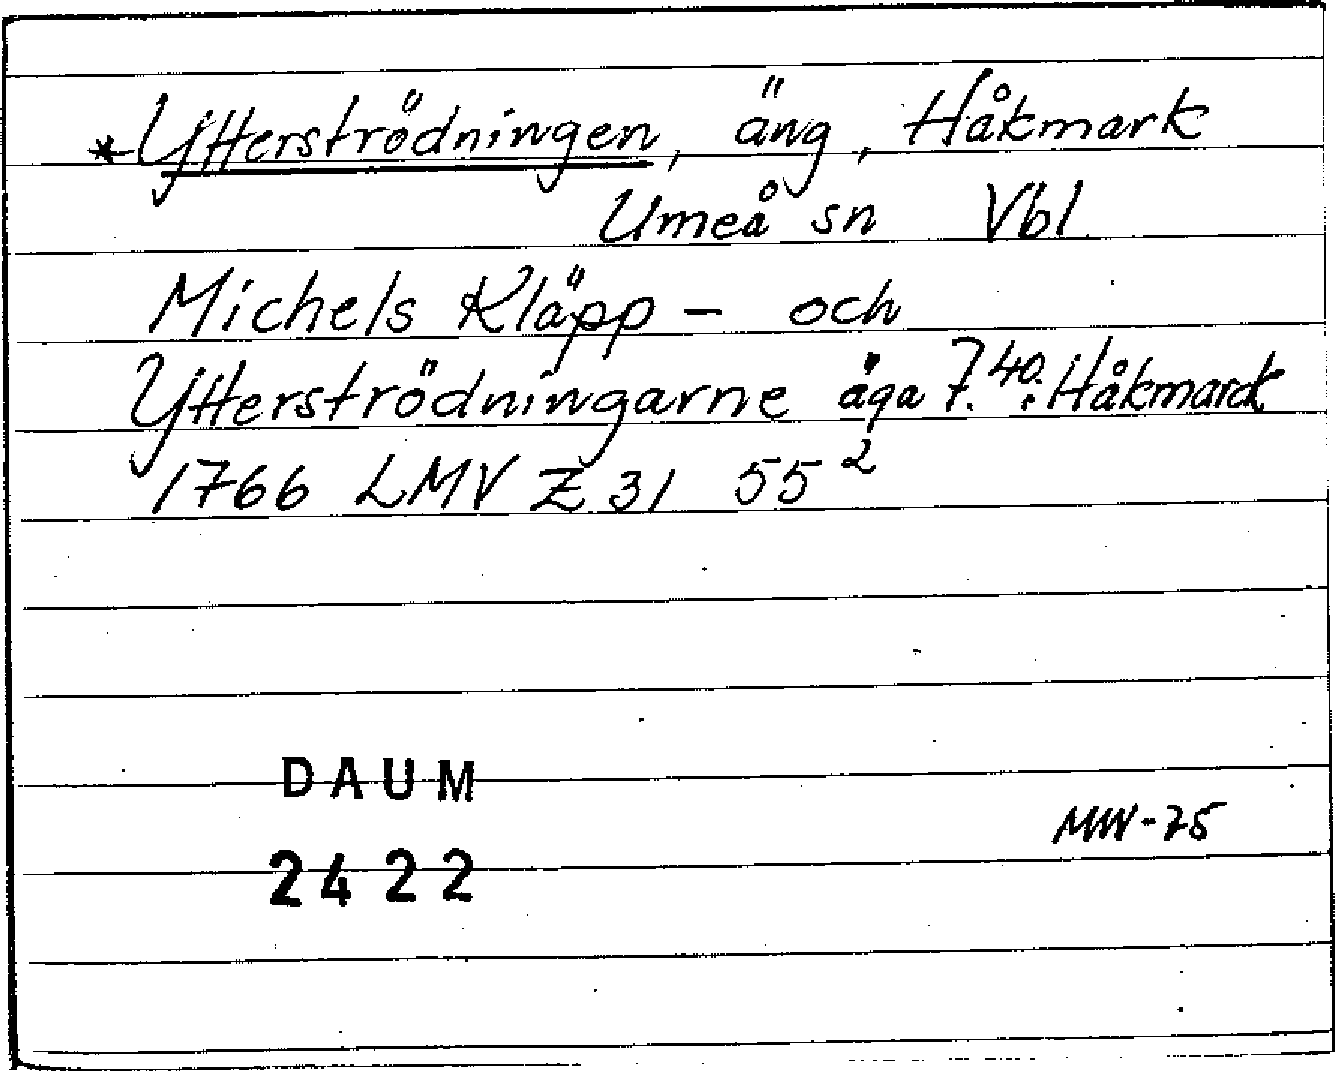 *Ytterströdningen, äng, Håkmark
Umeå sn Vbl
Michels Kläpp - och
Ytterströdningarne äga 7. 40. : Håkmarck
1766 LMV Z 31 55²
DAUM
MW-75
2422